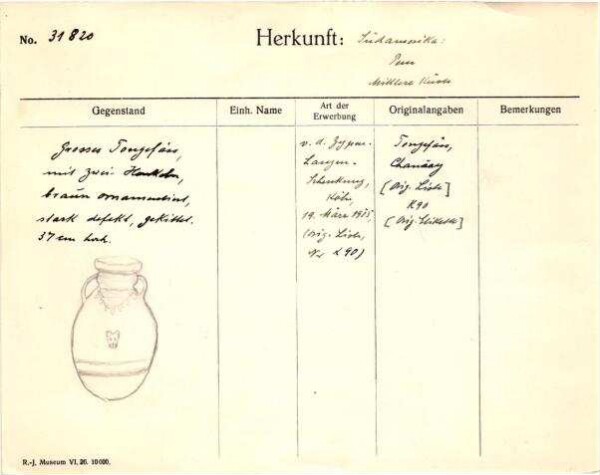 No. 31820
Herkunft: Südamerika:
Peru
Mittlere Küste
Gegenstand
Einh. Name
Art der Erwerbung
Originalangaben
Bemerkungen
Grosses Tongefäss,
mit zwei Henkeln,
braun ornamentiert,
stark defekt, gekittet.
37 cm hoch.
v. d. Zypen-
Langen-
Schenkung,
Köln,
19. März 1925,
(Orig. Liste,
Nr 290)
Tongefäss,
Chancay
[Orig. Liste]
290
[Orig. Etikette]
R.-J. Museum VI. 26. 10000.